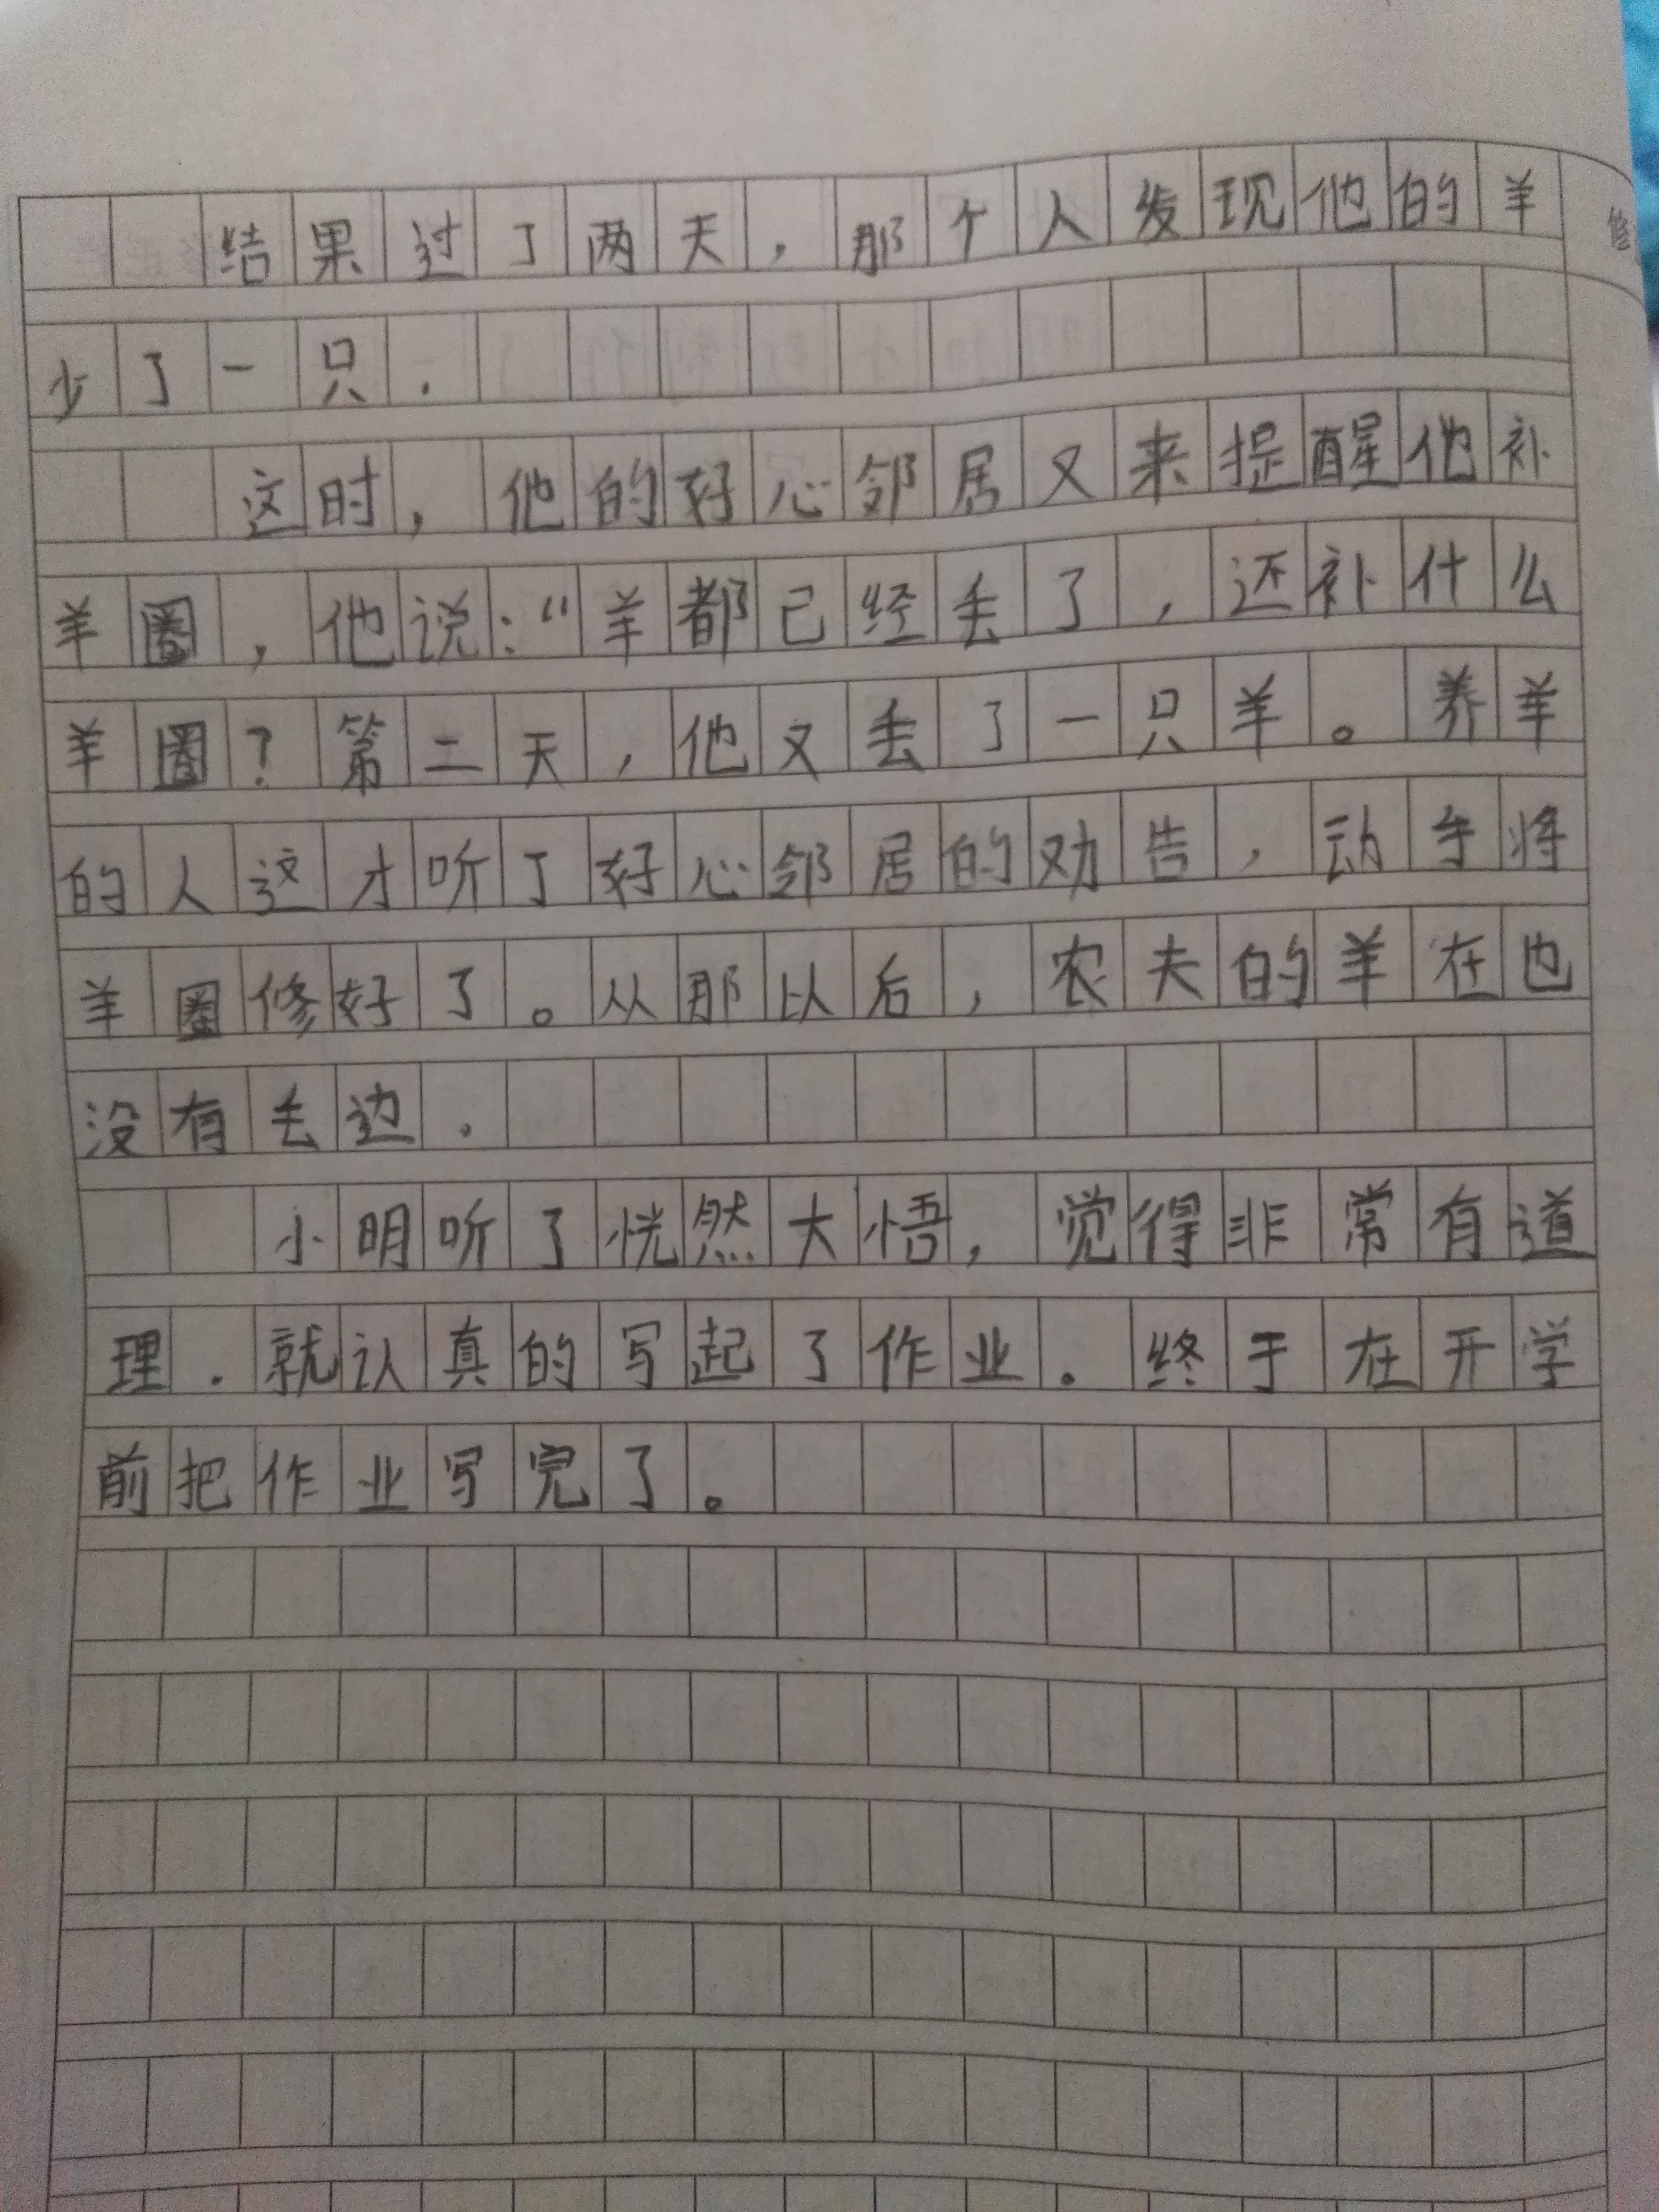 结果过了两天，那个人发现他的羊
少了一只.
这时，他的好心邻居又来提醒他补
羊圈，他说：“羊都已经丢了，还补什么
羊圈？第二天，他又丢了一只羊。养羊
的人这才听了好心邻居的劝告，动手将
羊圈修好了。从那以后，农夫的羊在也
没有丢边.
小明听了恍然大悟，觉得非常有道
理.就认真的写起了作业。终于在开学
前把作业写完了。